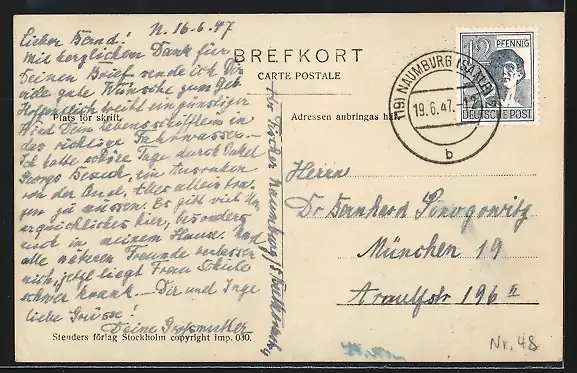 N. 16.6.47
Lieber Bernd!
Mit herzlichem Dank für
Deinen Brief sende ich Dir
viele gute Wünsche zum Geb.
Hoffentlich bleibt ein günstiger
Wind Dein Lebensschifflein in
das richtige Fahrwasser.
Ich hatte schöne Tage durch Onkel
Georgs Besuch, ein
von der Qual, alles allein tra-
gen zu müssen. Es gibt viel Un-
erquickliches hier, besonders
auch in meinem Haus. Und
alle näheren Freunde verlassen
mich, jetzt liegt Frau
schwer krank. Dir und Inge
liebe Grüsse!
Deine Grossmutter
Plats för skrift.
Stenders förlag Stockholm copyright imp. 030.
Fischer Naumburg/S
BREFKORT
CARTE POSTALE
Adressen anbringas hä
12 PFENNIG
DEUTSCHE POST
(19) NAUMBURG (SAALE) 2
19.6.47.-12
b
Herrn
Dr Bernhard
München 19
Arnulfstr 196 II
Nr. 48